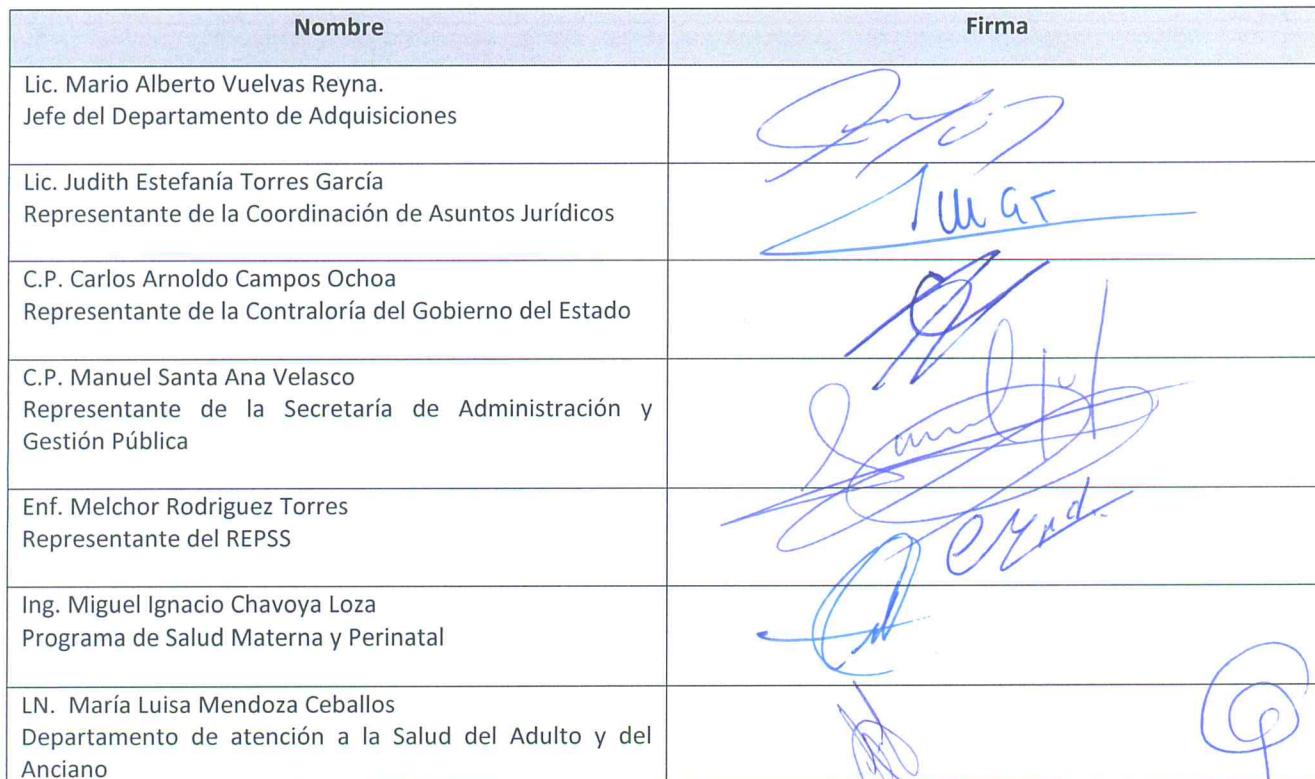 Nombre Firma
Lic. Mario Alberto Vuelvas Reyna.
Jefe del Departamento de Adquisiciones
Lic. Judith Estefanía Torres García
Representante de la Coordinación de Asuntos Jurídicos
C.P. Carlos Arnoldo Campos Ochoa
Representante de la Contraloría del Gobierno del Estado
C.P. Manuel Santa Ana Velasco
Representante de la Secretaría de Administración y
Gestión Pública
Enf. Melchor Rodriguez Torres
Representante del REPSS
Ing. Miguel Ignacio Chavoya Loza
Programa de Salud Materna y Perinatal
LN. María Luisa Mendoza Ceballos
Departamento de atención a la Salud del Adulto y del
Anciano